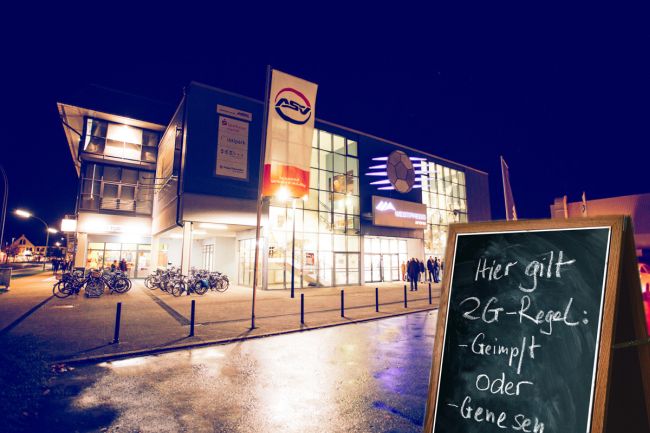 ASV
WESTPRESS
Hier gilt
2G-Regel:
-Geimpft
oder
-Genesen